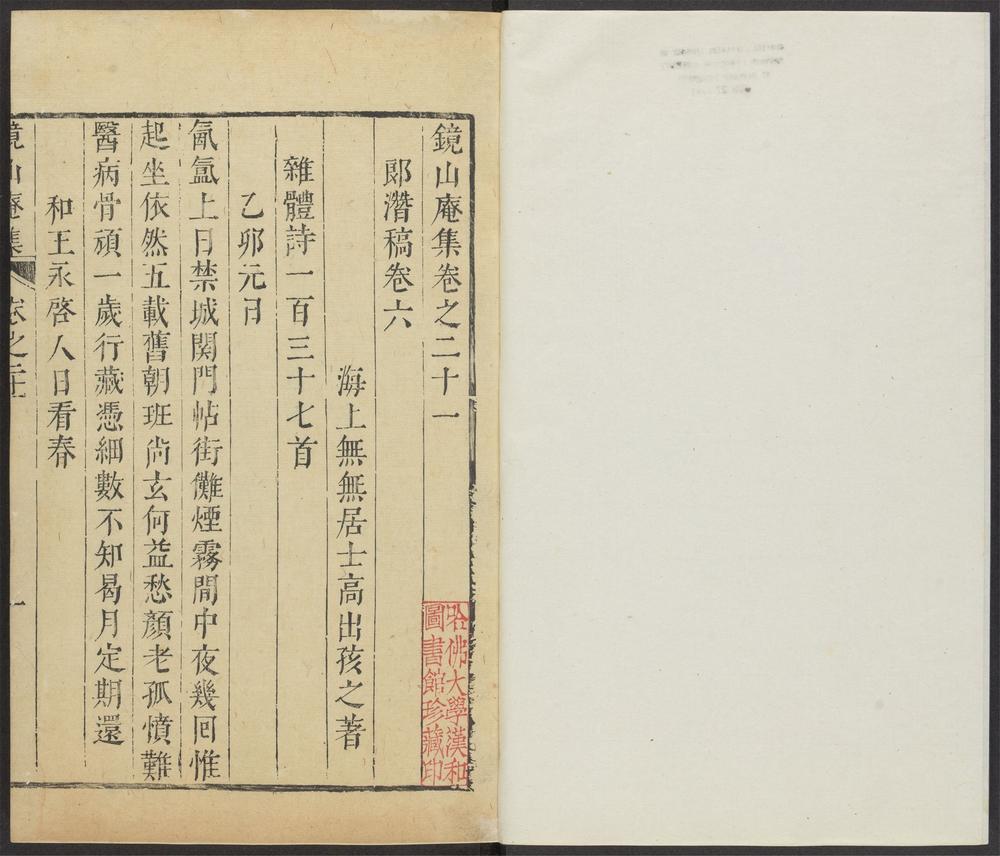 鏡山庵集卷之二十一
郎潛稿卷六
海上無無居士高出孩之著
雜體詩一百三十七首
乙卯元日
氤氳上日禁城関門帖街儺煙霧間中夜幾回惟
起坐依然五載舊朝班尚玄何益愁顏老孤憤難
醫病骨頑一歲行藏憑細數不知曷月定期還
和王永啓人日看春
鏡山庵集
卷之二十一
一
哈佛大學漢和
圖書館珍藏印